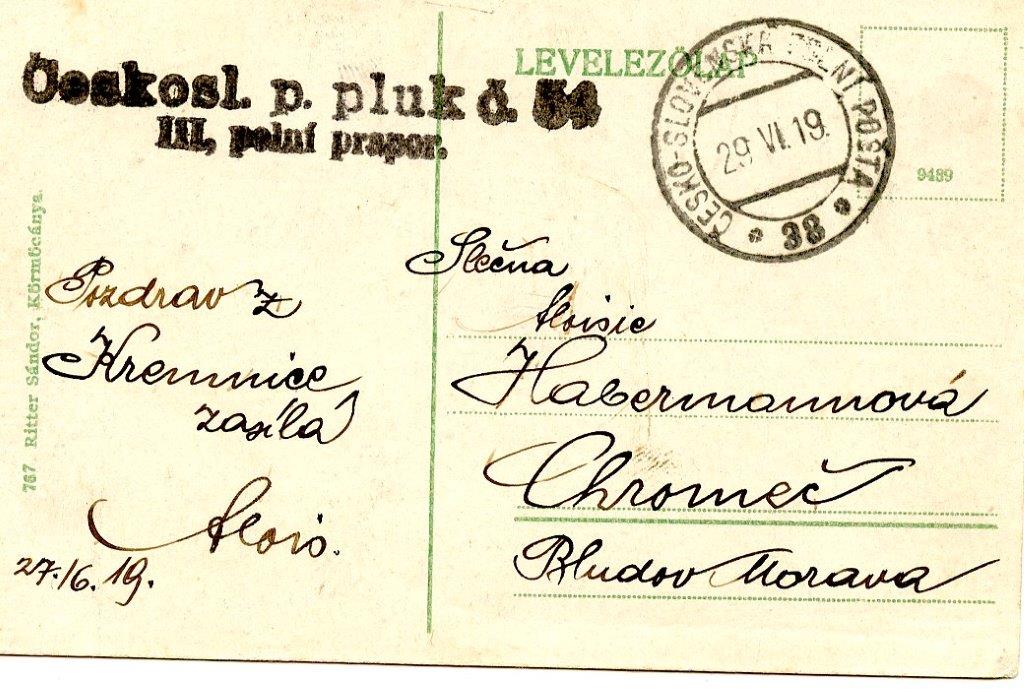 Českosl. p. pluk č. 54
III, polní prapor.
LEVELEZŐLAP
ČESKO-SLOVENSKÁ POLNÍ POŠTA
29 VI. 19.
38
9489
767 Ritter Sándor, Körmöcánya.
Pozdrav z
Kremnice
zasílá
Alois.
27./6. 19.
Slečna
Aloisie
Habermannová
Chromeč
Bludov Morava